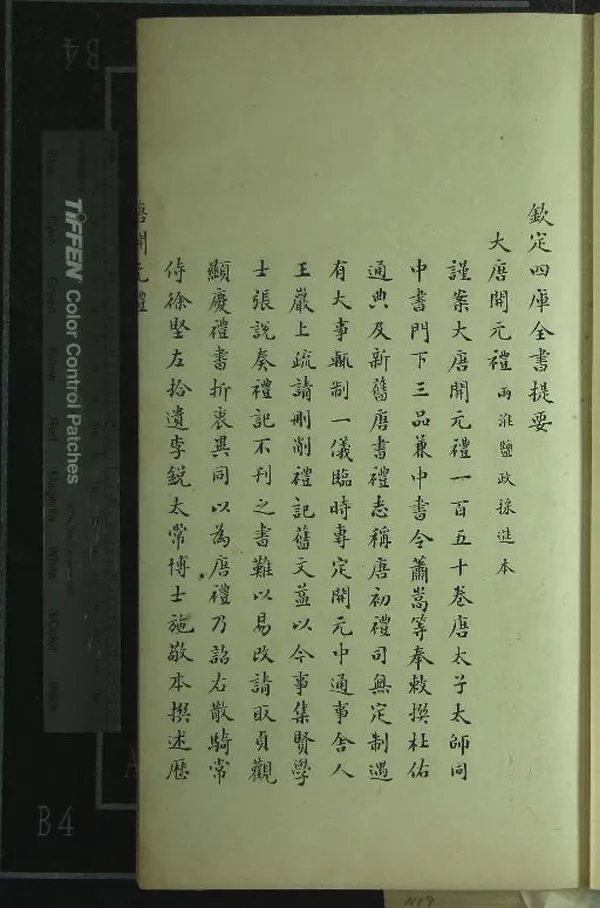 欽定四庫全書提要
大唐開元禮兩淮鹽政採進本
謹案大唐開元禮一百五十卷唐太子太師同
中書門下三品兼中書令蕭嵩等奉敕撰杜佑
通典及新舊唐書禮志稱唐初禮司無定制遇
有大事輒制一儀臨時專定開元中通事舍人
王嵒上疏請刪削禮記舊文益以今事集賢學
士張說奏禮記不刊之書難以易改請取貞觀
顯慶禮書折衷異同以為唐禮乃詔右散騎常
侍徐堅左拾遺李銳太常博士施敬本撰述歷
唐開元禮
TIFFEN Color Control Patches
B4
B4
1119